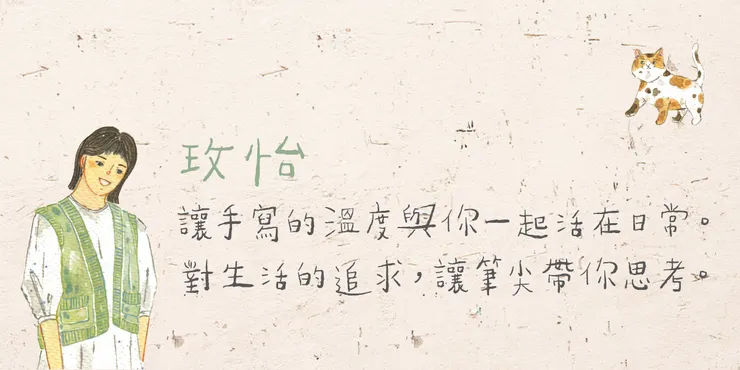 玫怡
讓手寫的溫度與你一起活在日常。
對生活的追求，讓筆尖帶你思考。